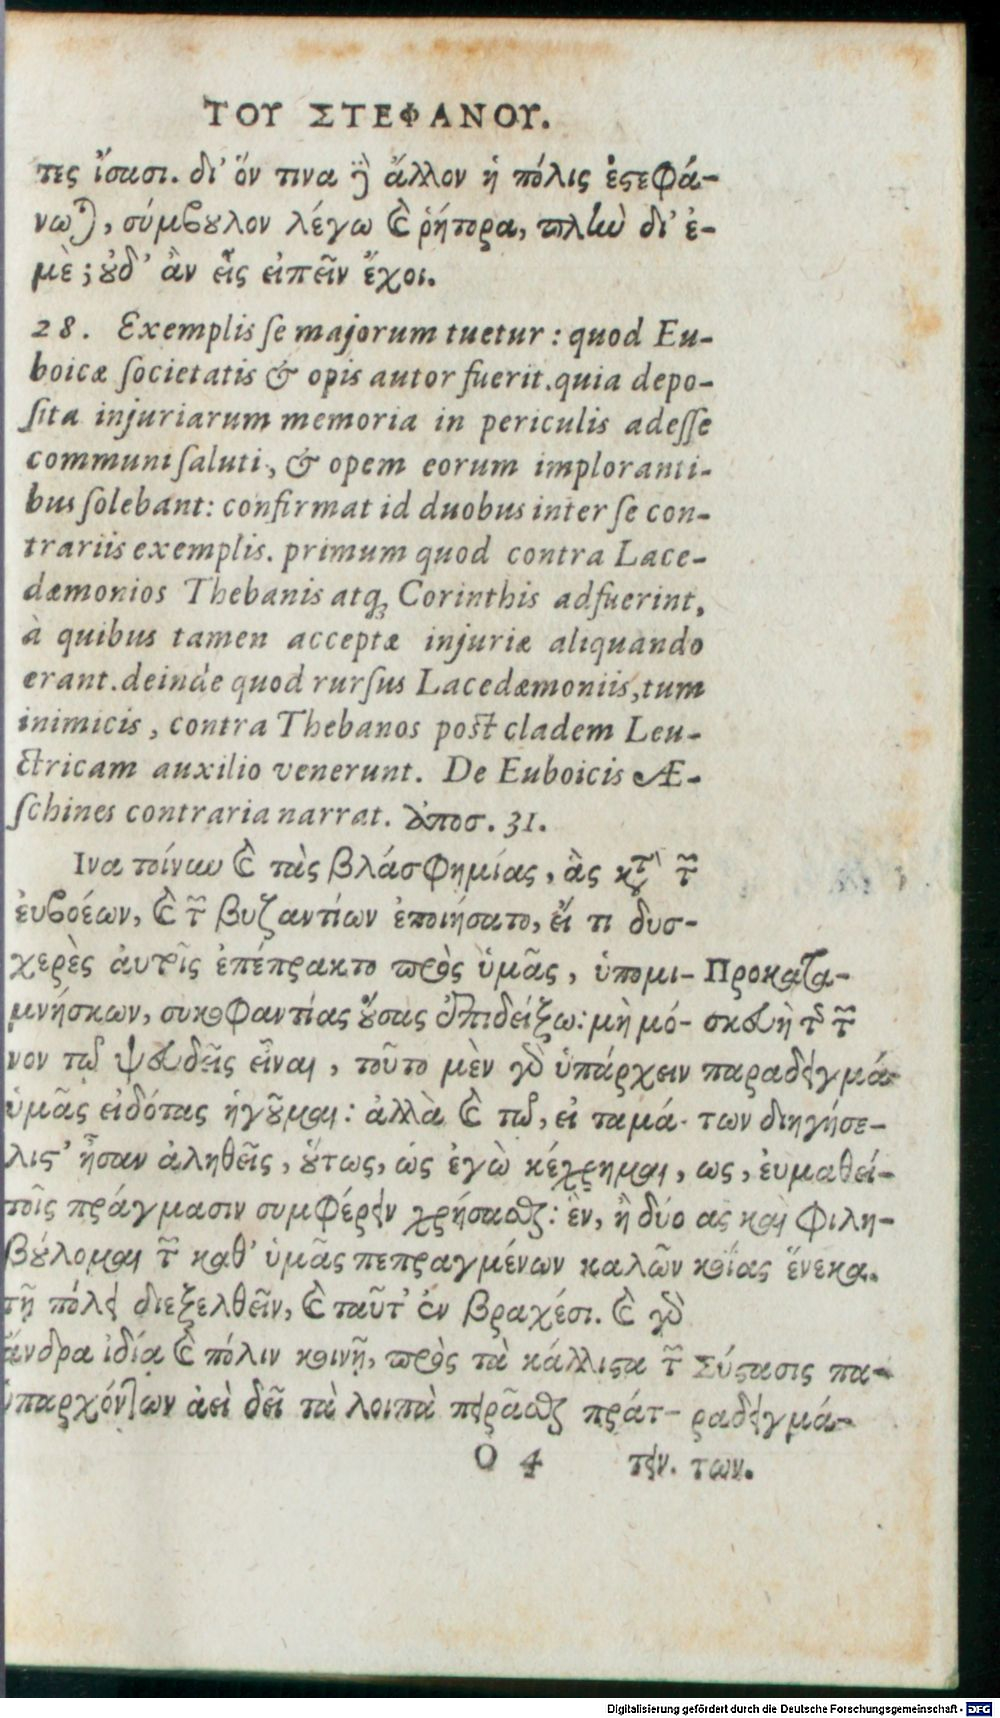 ΤΟΥ ΣΤΕΦΑΝΟΥ.
τες ἴσασι. δι' ὅν τινα ἢ ἄλλον ἡ πόλις ἐστεφά-
νωται, σύμβουλον λέγω καὶ ῥήτορα, πλὴν δι' ἐ-
μὲ; οὐδ' ἂν εἷς εἰπεῖν ἔχοι.
28. Exemplis ſe majorum tuetur: quod Eu-
boicæ ſocietatis & opis autor fuerit. quia depo-
ſita injuriarum memoria in periculis adeſſe
communi ſaluti, & opem eorum imploranti-
bus ſolebant: confirmat id duobus inter ſe con-
trariis exemplis. primum quod contra Lace-
dæmonios Thebanis atq; Corinthis adfuerint,
à quibus tamen acceptæ injuriæ aliquando
erant. deinde quod rurſus Lacedæmoniis, tum
inimicis, contra Thebanos poſt cladem Leu-
ctricam auxilio venerunt. De Euboicis Æ-
ſchines contraria narrat. ἀποσ. 31.
Ινα τοίνυν καὶ τὰς βλασφημίας, ἃς κατὰ τῶν
ἐυβοέων, καὶ τῶν βυζαντίων ἐποιήσατο, εἴ τι δυσ-
χερὲς ἀυτοῖς ἐπέπρακτο πρὸς ὑμᾶς, ὑπομι-
μνήσκων, συκοφαντίας οὔσας ἐπιδείξω: μὴ μό-
νον τῷ ψευδεῖς εἶναι, τοῦτο μὲν γὰρ ὑπάρχειν
ὑμᾶς εἰδότας ἡγοῦμαι: ἀλλὰ καὶ τῷ, εἰ ταμά-
λιστ' ἦσαν ἀληθεῖς, οὕτως, ὡς ἐγὼ κέχρημαι,
τοῖς πράγμασιν συμφέρειν χρήσασθαι: ἓν, ἢ δύο
βούλομαι τῶν καθ' ὑμᾶς πεπραγμένων καλῶν
τῇ πόλει διεξελθεῖν, καὶ ταῦτ' ἐν βραχέσι. καὶ γὰρ
ἄνδρα ἰδίᾳ καὶ πόλιν κοινῇ, πρὸς τὰ κάλλιστα τῶν
ὑπαρχόντων ἀεὶ δεῖ τὰ λοιπὰ πειρᾶσθαι πράτ-
Προκατα-
σκευὴ τῶν
παραδειγμά-
των διηγήσε-
ως, ευμαθεί-
ας καὶ φιλη-
κοΐας ἕνεκα.
Σύστασις πα-
ραδειγμά-
των.
O 4 τειν.
Digitalisierung gefördert durch die Deutsche Forschungsgemeinschaft - DFG